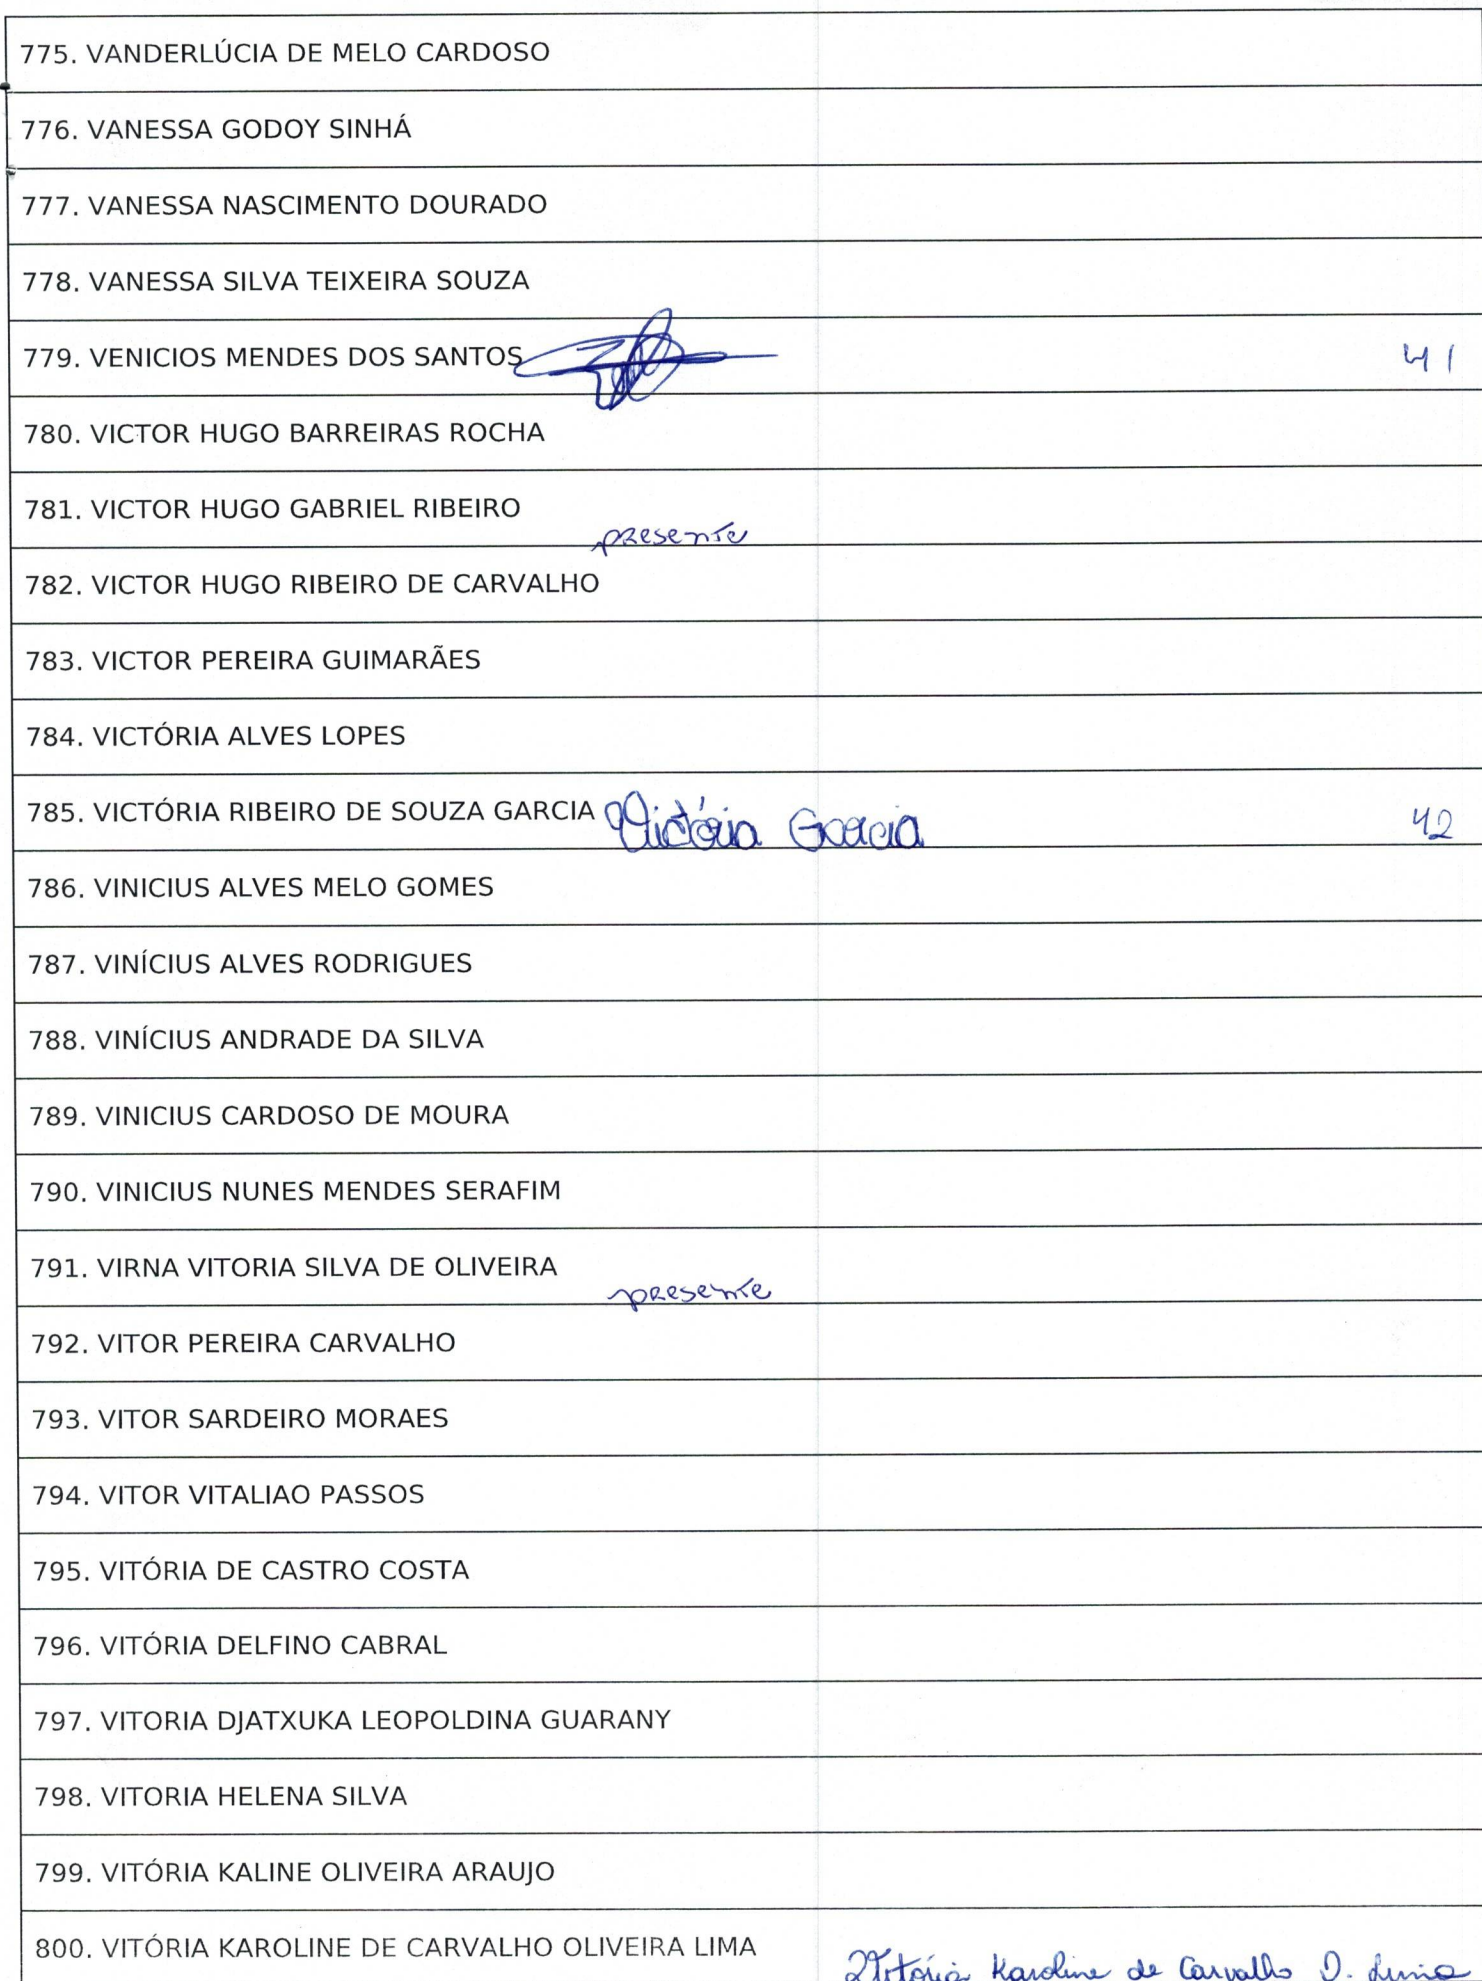 775. VANDERLÚCIA DE MELO CARDOSO
776. VANESSA GODOY SINHÁ
777. VANESSA NASCIMENTO DOURADO
778. VANESSA SILVA TEIXEIRA SOUZA
779. VENICIOS MENDES DOS SANTOS 41
780. VICTOR HUGO BARREIRAS ROCHA
781. VICTOR HUGO GABRIEL RIBEIRO
presente
782. VICTOR HUGO RIBEIRO DE CARVALHO
783. VICTOR PEREIRA GUIMARÃES
784. VICTÓRIA ALVES LOPES
785. VICTÓRIA RIBEIRO DE SOUZA GARCIA Victória Garcia 42
786. VINICIUS ALVES MELO GOMES
787. VINÍCIUS ALVES RODRIGUES
788. VINÍCIUS ANDRADE DA SILVA
789. VINICIUS CARDOSO DE MOURA
790. VINICIUS NUNES MENDES SERAFIM
791. VIRNA VITORIA SILVA DE OLIVEIRA
presente
792. VITOR PEREIRA CARVALHO
793. VITOR SARDEIRO MORAES
794. VITOR VITALIAO PASSOS
795. VITÓRIA DE CASTRO COSTA
796. VITÓRIA DELFINO CABRAL
797. VITORIA DJATXUKA LEOPOLDINA GUARANY
798. VITORIA HELENA SILVA
799. VITÓRIA KALINE OLIVEIRA ARAUJO
800. VITÓRIA KAROLINE DE CARVALHO OLIVEIRA LIMA Vitória Karoline de Carvalho O. Lima